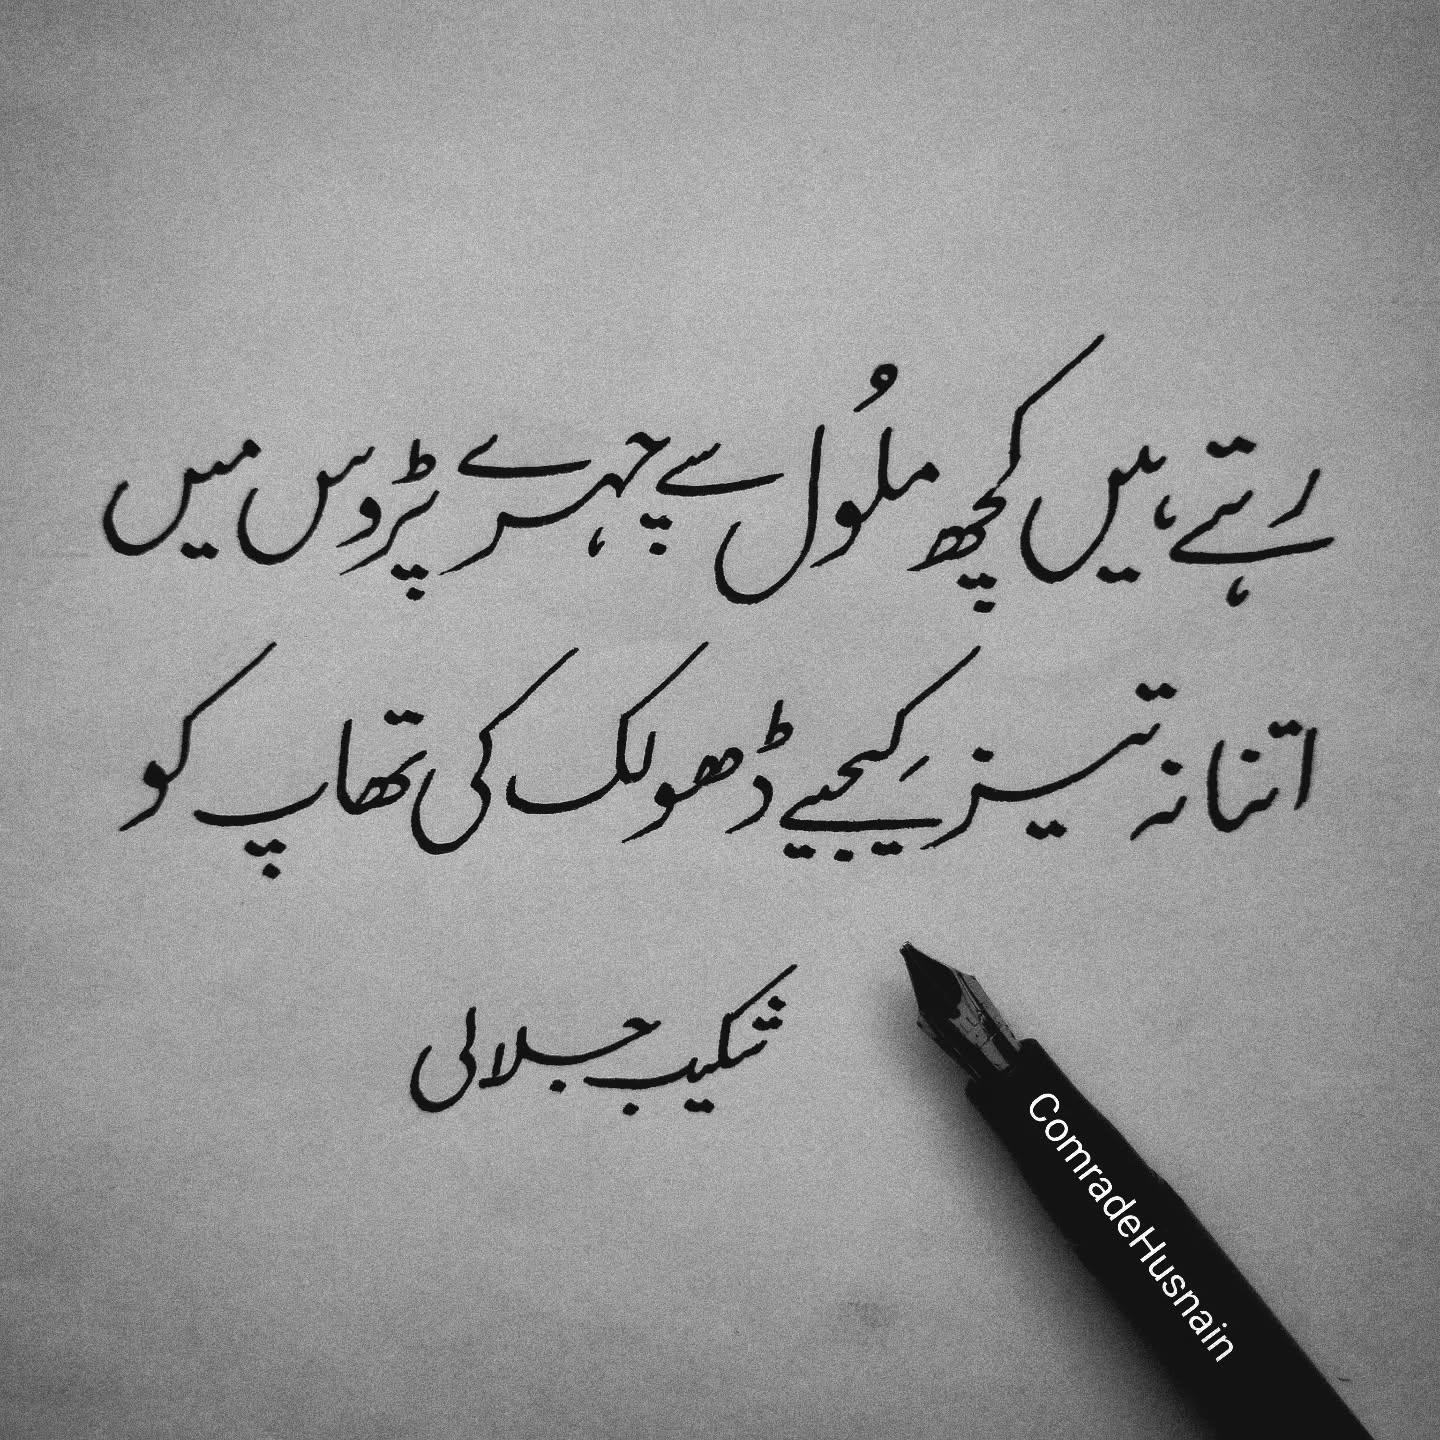 رہتے ہیں کچھ ملُول سے چہرے پڑوس میں
اتنا نہ تیز کیجیے ڈھولک کی تھاپ کو
شکیب جلالی
ComradeHusnain